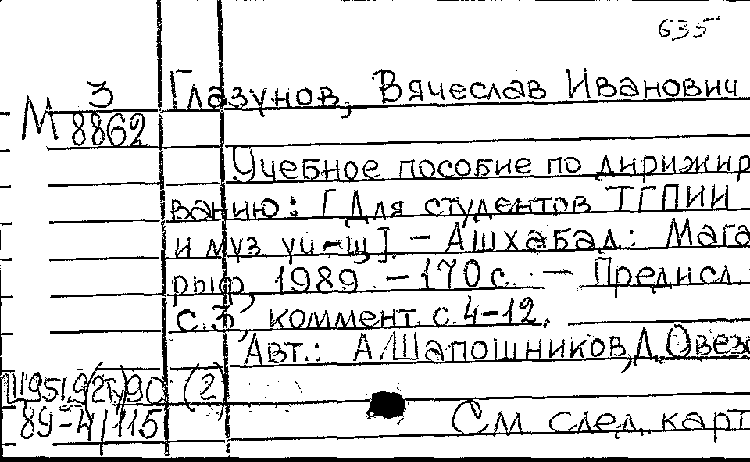 635
З Глазунов, Вячеслав Иванович
М 8862
Учебное пособие по дирижир
ванию: [Для студентов ТГПИИ
и муз уч-щ]. – Ашхабад: Мага
рыф, 1989. – 170 с. – Предисл.
с. 3, коммент. с. 4-12.
Авт.: А.Шапошников, Д.Овез
90 (2)
89-4/115 См след. карт